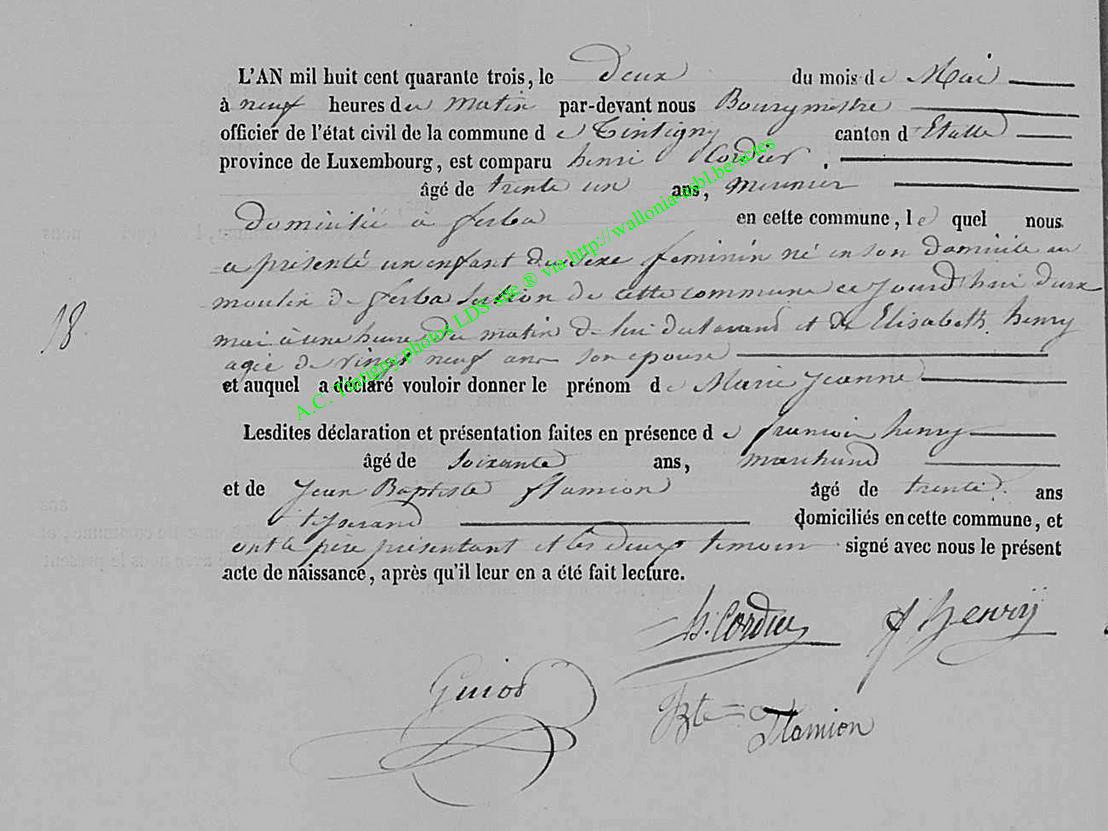 L'AN mil huit cent quarante trois, le deux du mois de Mai
à neuf heures du matin par-devant nous Bourgmestre
officier de l'état civil de la commune de Tintigny canton d'Etalle
province de Luxembourg, est comparu henri Cordier,
âgé de trente un ans, meunier
Domicilié à ferba en cette commune, lequel nous
a présenté un enfant du sexe féminin né en son domicile au
18.
moulin de ferba section de cette commune ce jourd'hui deux
mai à une heure du matin de lui déclarant et de Elisabeth henry
agée de vingt neuf ans son épouse
et auquel a déclaré vouloir donner le prénom de Marie Jeanne
Lesdites déclaration et présentation faites en présence de françois henry
âgé de soixante ans, marchand
et de Jean Baptiste flamion âgé de trente ans
tisserand domiciliés en cette commune, et
ont le père présentant et les deux temoin signé avec nous le présent
acte de naissance, après qu'il leur en a été fait lecture.
h. Cordier f henry
Guiot
Bte flamion
A.C. Tintigny photos LDS site ® via http://wallonia-asbl.be/actes